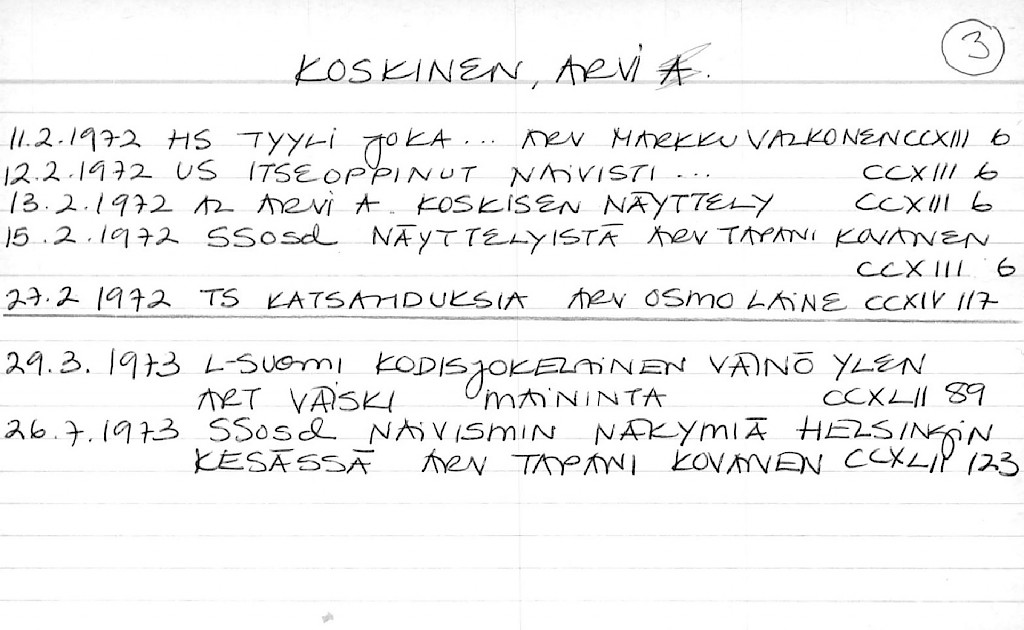 3
KOSKINEN, ARVI A.
11.2.1972 HS TYYLI JOKA... ARV MARKKU VALKONEN CCXIII 6
12.2.1972 US ITSEOPPINUT NAIVISTI... CCXIII 6
13.2.1972 AL ARVI A. KOSKISEN NÄYTTELY CCXIII 6
15.2.1972 SSosd NÄYTTELYISTÄ ARV TAPANI KOVANEN
CCXIII 6
27.2 1972 TS KATSAHDUKSIA ARV OSMO LAINE CCXIV 117
29.3.1973 L-SUOMI KODISJOKELAINEN VÄINÖ YLEN
ART VÄISKI MAININTA CCXLII 89
26.7.1973 SSosd NAIVISMIN NÄKYMIÄ HELSINGIN
KESÄSSÄ ARV TAPANI KOVANEN CCXLII 123